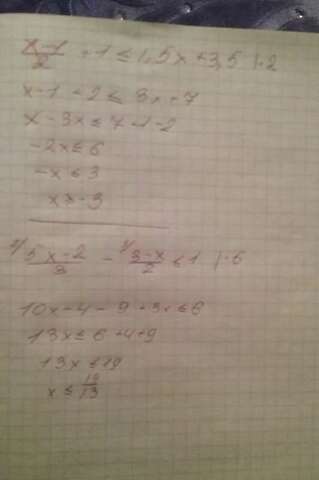 x-1/2 + 1 ≤ 1,5x + 3,5 |·2
x - 1 + 2 ≤ 3x + 7
x - 3x ≤ 7 + 1 - 2
-2x ≤ 6
-x ≤ 3
x ≥ -3
2/ 5x-2/3 - 3/ 3-x/2 ≤ 1 |·6
10x - 4 - 9 + 3x ≤ 6
13x ≤ 6 + 4 + 9
13x ≤ 19
x ≤ 19/13